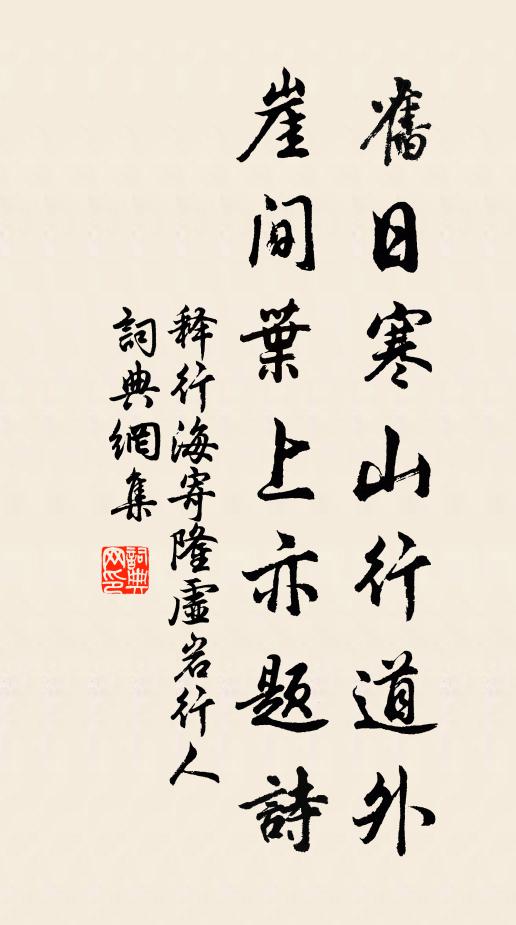 舊日寒山行道外
崖間葉上亦題詩
释行海寄隆虛岩行人
詞典網集
詞典网印